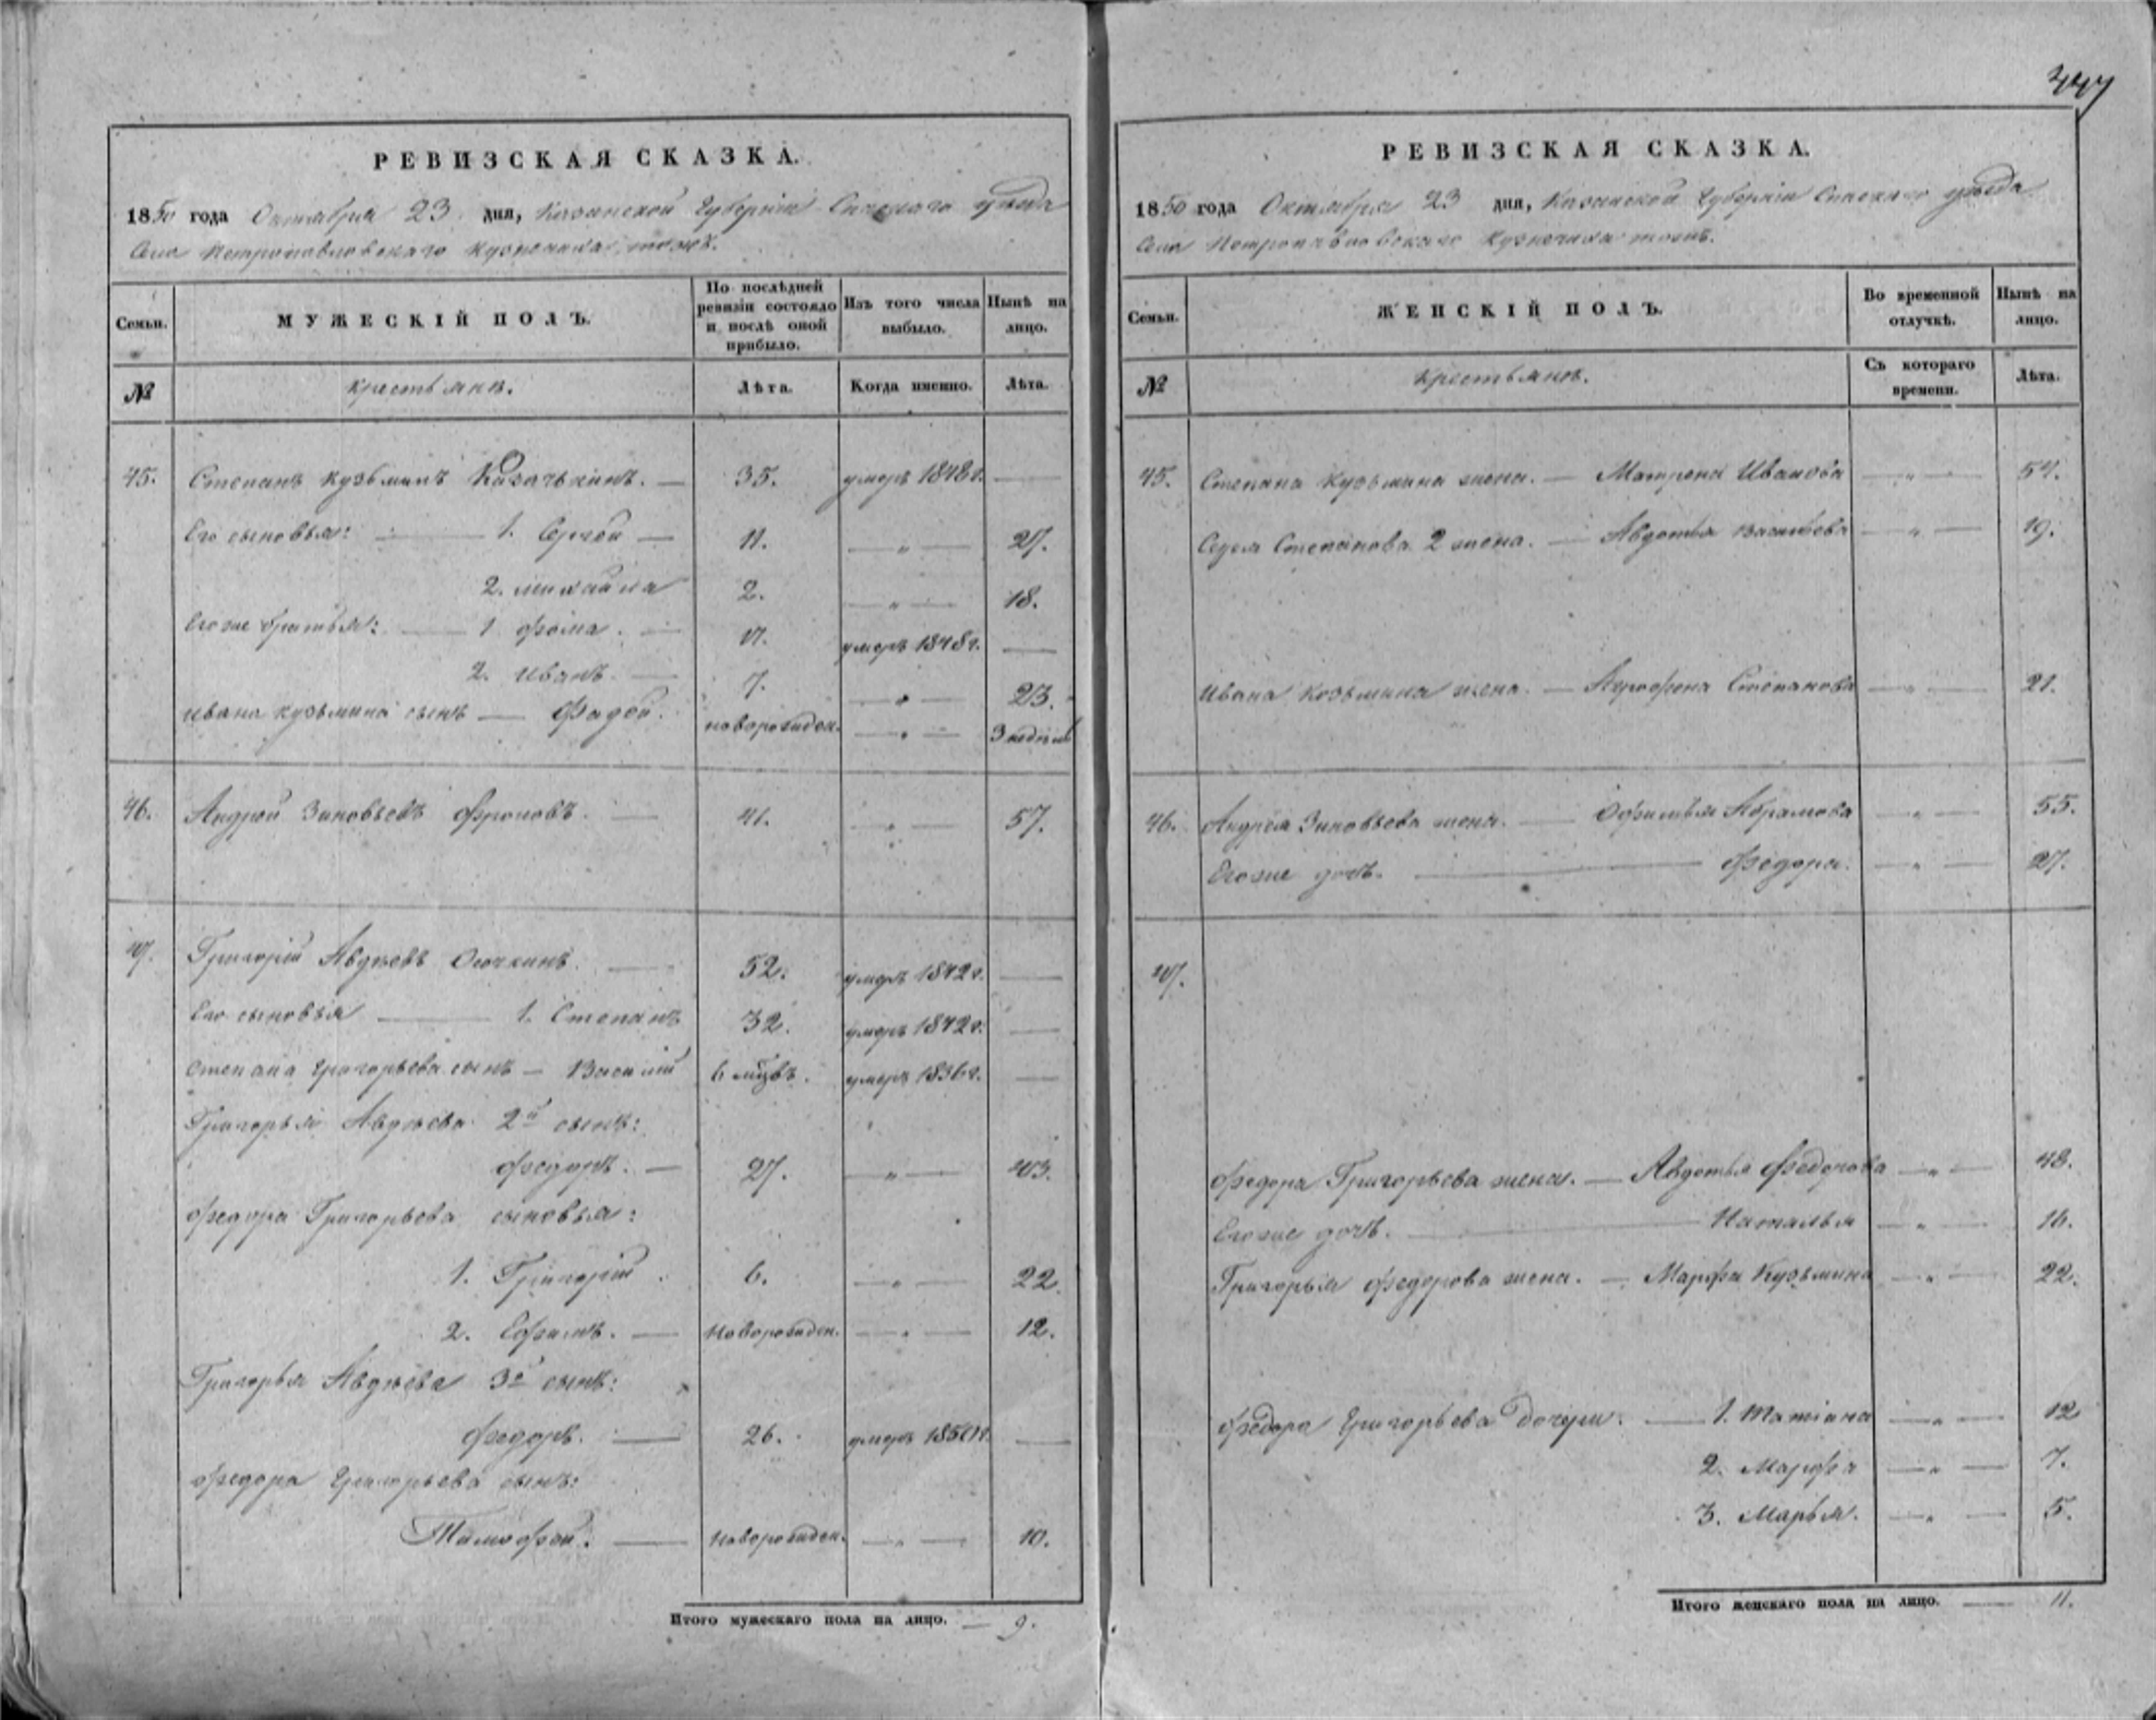 447
РЕВИЗСКАЯ СКАЗКА.
1850 года Октября 23 дня, Казанской Губерніи Спаскаго уѣзда
Села Петропавловскаго Кузнечиха тожъ.
Семьи.
МУЖЕСКІЙ ПОЛЪ.
По послѣдней ревизіи состояло и послѣ оной прибыло.
Изъ того числа выбыло.
Нынѣ на лицо.
№
Крестьянѣ.
Лѣта.
Когда именно.
Лѣта.
45. Степанъ Кузьминъ Казачькинъ. — 35. умеръ 1848г. —
Его сыновья: — 1. Сергей — 11. — „ — 27.
2. Михайла 2. — „ — 18.
Его же братья: — 1 Фома. — 17. умеръ 1848г. —
2. Иванъ. — 7. — „ — 23.
Ивана Кузьмина сынъ — Фадей. новорожден. — „ — 3 недѣли
46. Андрей Зиновьевъ Фроловъ. — 41. — „ — 57.
47. Григорій Авдѣевъ — 52. умеръ 1842г. —
Его сыновья — 1. Степанъ 32. умеръ 1842г. —
Степана Григорьева сынъ — Василій 6 мцвъ. умеръ 1836г. —
Григорья Авдѣева 2й сынъ:
Федоръ. — 27. — „ — 43.
Федора Григорьева сыновья:
1. Григорій. 6. — „ — 22.
2. Ефимъ. — Новорожден. — „ — 12.
Григорья Авдѣева 3й сынъ:
Федоръ. — 26. умеръ —
Федора Григорьева сынъ:
Тимофей. — Новорожден. — „ — 10.
Итого мужескаго пола на лицо. — 9.
РЕВИЗСКАЯ СКАЗКА.
1850 года Октября 23 дня, Казанской Губерніи Спаскаго уѣзда
Села Петропавловскаго Кузнечиха тожъ.
Семьи.
ЖЕНСКІЙ ПОЛЪ.
Во временной отлучкѣ.
Нынѣ на лицо.
№
Крестьянѣ.
Съ котораго времени.
Лѣта.
45. Степана Кузьмина жена. — Матрена Иванова — „ — 54.
Степанова 2 жена. — Авдотья Васильева — „ — 19.
Ивана Козьмина жена. — Степанова — „ — 21.
46. Андрея Зиновьева жена. — Офимья Абрамова — „ — 55.
Его же дочь. — Федора. — „ — 27.
47.
Федора Григорьева жена. — Авдотья Федорова — „ — 48.
Его же дочь. — Наталья — „ — 16.
Григорья Федорова жена. — Марфа Кузьмина — „ — 22.
Федора Григорьева дочери. — 1. Татіана — „ — 12
2. Марфа — „ — 7.
3. Марья. — „ — 5.
Итого женскаго пола на лицо. — 11.